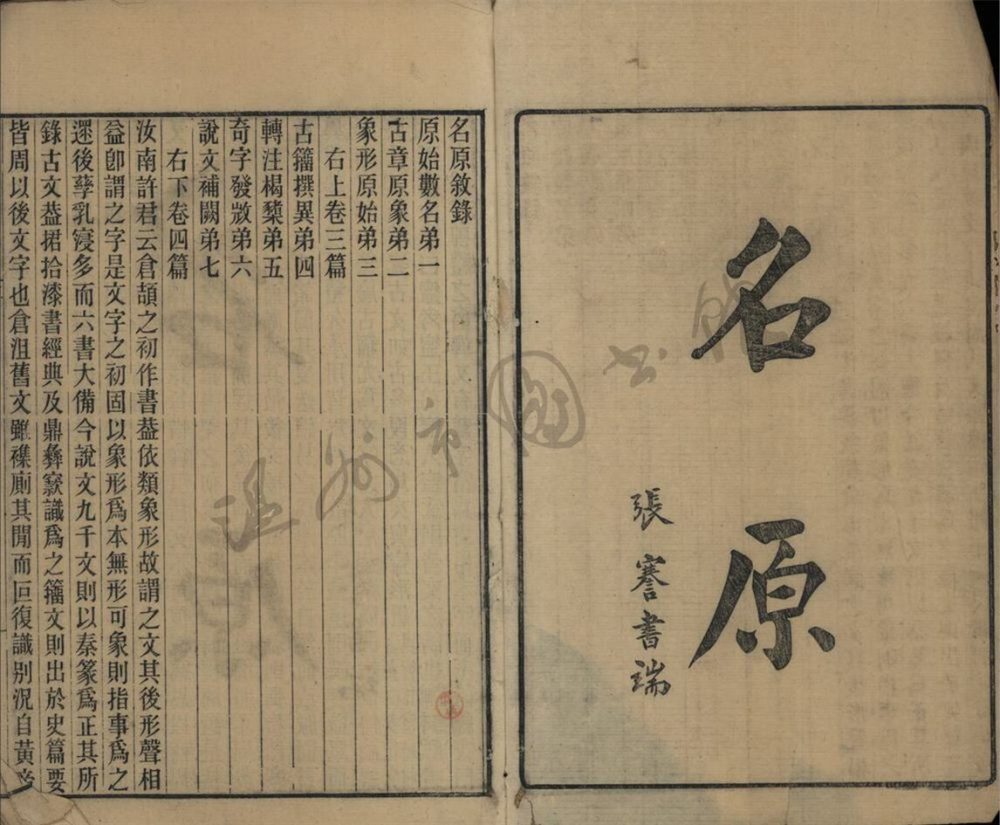 名原
張謇書耑
名原敘錄
原始數名弟一
古章原象弟二
象形原始弟三
右上卷三篇
古籀撰異弟四
轉注楬櫫弟五
奇字發微弟六
說文補闕弟七
右下卷四篇
汝南許君云倉頡之初作書葢依類象形故謂之文其後形聲相
益卽謂之字是文字之初固以象形爲本無形可象則指事爲之
還後孳乳寖多而六書大備今說文九千文則以秦篆爲正其所
錄古文葢捃拾漆書經典及鼎彝窾識爲之籀文則出於史篇要
皆周以後文字也倉沮舊文雖襍廁其閒而叵復識別況自黃帝
溫州市圖書館